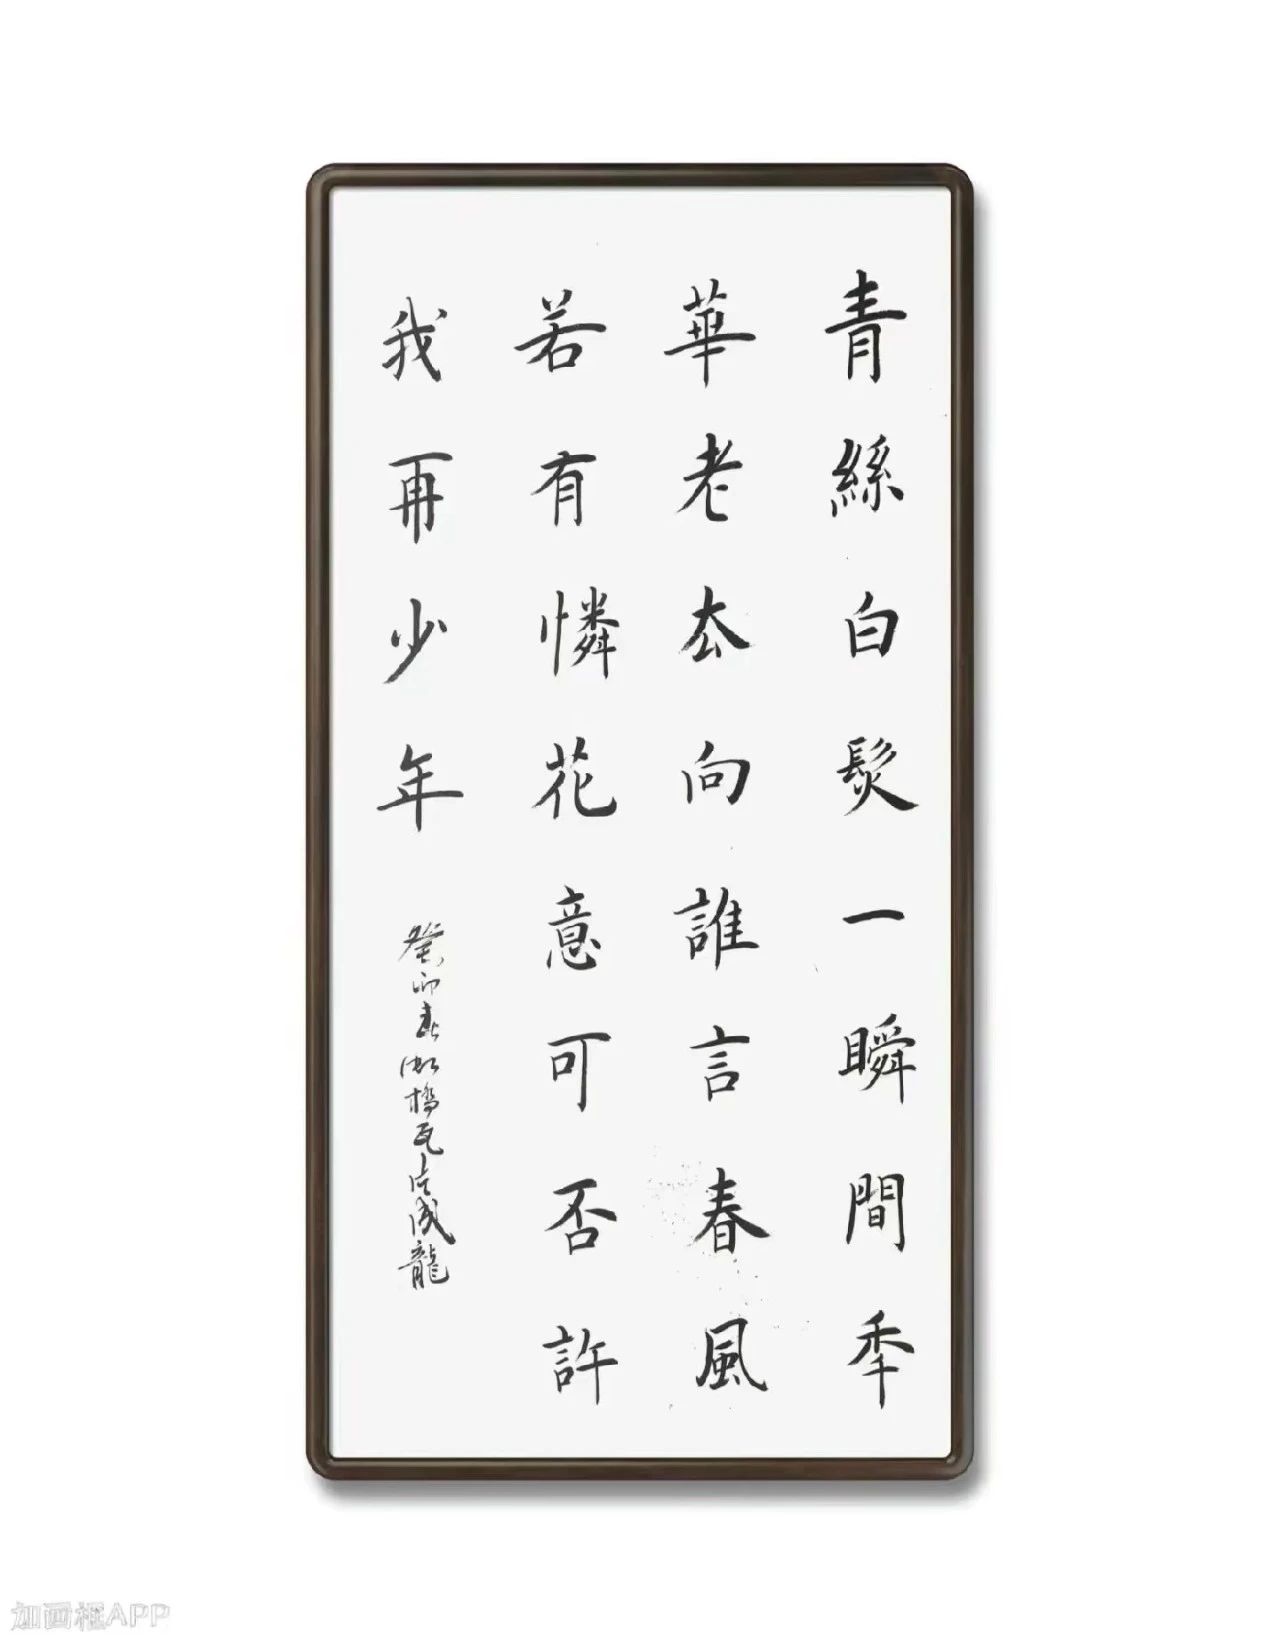 青絲白髮一瞬間秊
華老去向誰言春風
若有憐花意可否許
我再少年
癸卯春
成龍
加画框APP